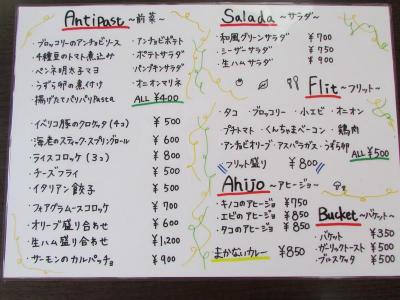 Antipast ~前菜~
・ブロッコリーのアンチョビソース
・4種豆のトマト煮込み
・ペンネ明太子マヨ
・うずら卵の煮付け
・揚げたてパリパリpasta
・アンチョビポテト
・ポテトサラダ
・パンプキンサラダ
・オニオンマリネ
ALL ¥400
・イベリコ豚のクロケッタ(4コ) ¥500
・海老のスティックスプリングロール ¥600
・ライスコロッケ(3コ) ¥800
・チーズフライ ¥500
・イタリアン餃子 ¥500
・フォアグラムースフロマージュ ¥700
・オリーブ盛り合わせ ¥600
・生ハム盛り合わせ ¥1,200
・サーモンのカルパッチョ ¥900
Salada ~サラダ~
・和風グリーンサラダ ¥700
・シーザーサラダ ¥750
・生ハムサラダ ¥900
Flit ~フリット~
・タコ ・ブロッコリー ・小エビ ・オニオン
・プチトマト ・くんちゃまベーコン ・鶏肉
・アンチョビオリーブ ・アスパラガス ・うずら卵
ALL ¥500
フリット盛り ¥800
Ahijo ~アヒージョ~
・キノコのアヒージョ ¥750
・エビのアヒージョ ¥850
・タコのアヒージョ ¥850
まかないカレー ¥850
Bucket ~バケット~
・バケット ¥350
・ガーリックトースト ¥500
・ブルスケッタ ¥500